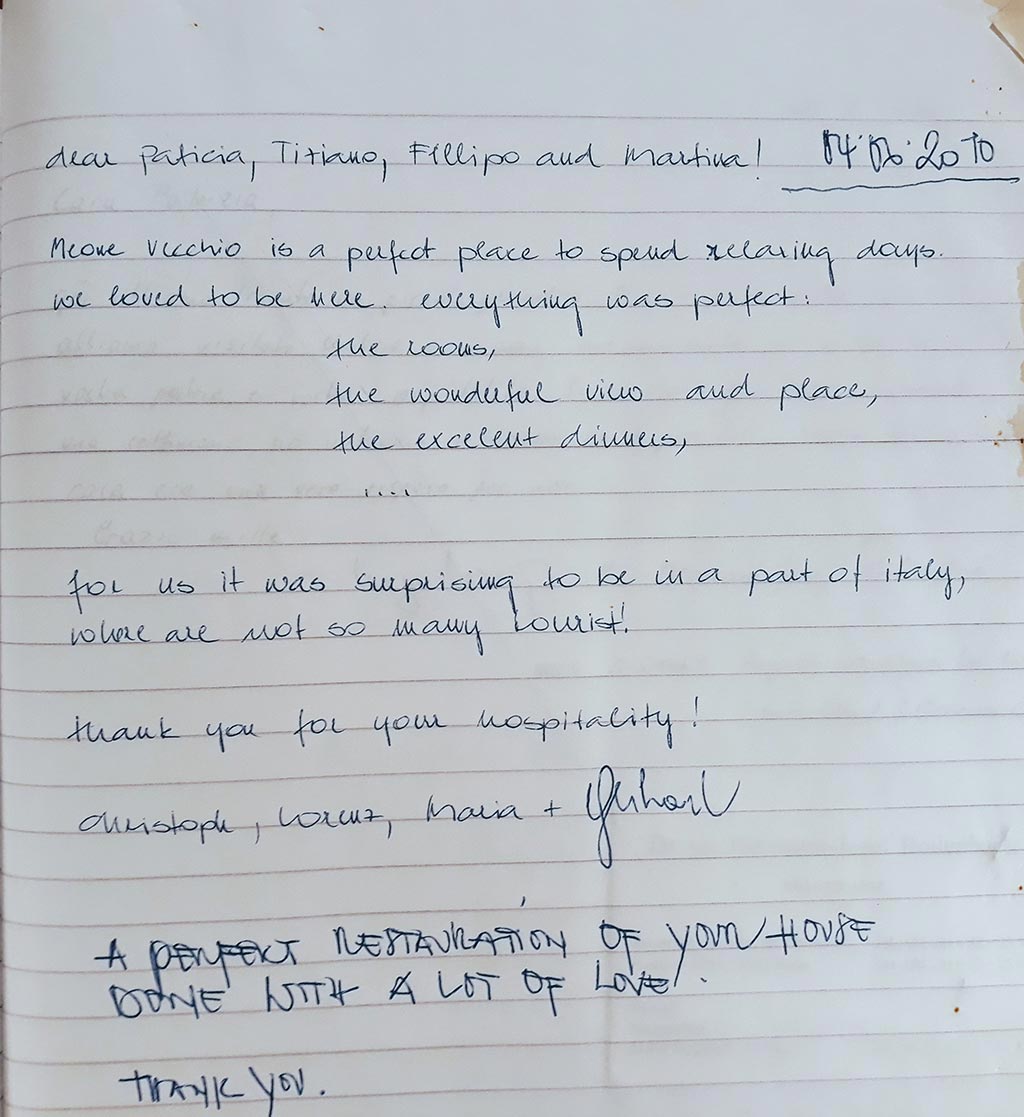 dear Paticia, Titiano, Fillipo and Martina! 04.06.2010
Meone Vecchio is a perfect place to spend relaxing days.
we loved to be here. everything was perfect:
the rooms,
the wonderful view and place,
the excelent dinners,
....
for us it was surprising to be in a part of italy,
where are not so many tourist!
thank you for your hospitality!
Christoph, Lorenz, Maria +
A PERFEKT RESTAURATION OF YOUR HOUSE
DONE WITH A LOT OF LOVE.
THANK YOU.